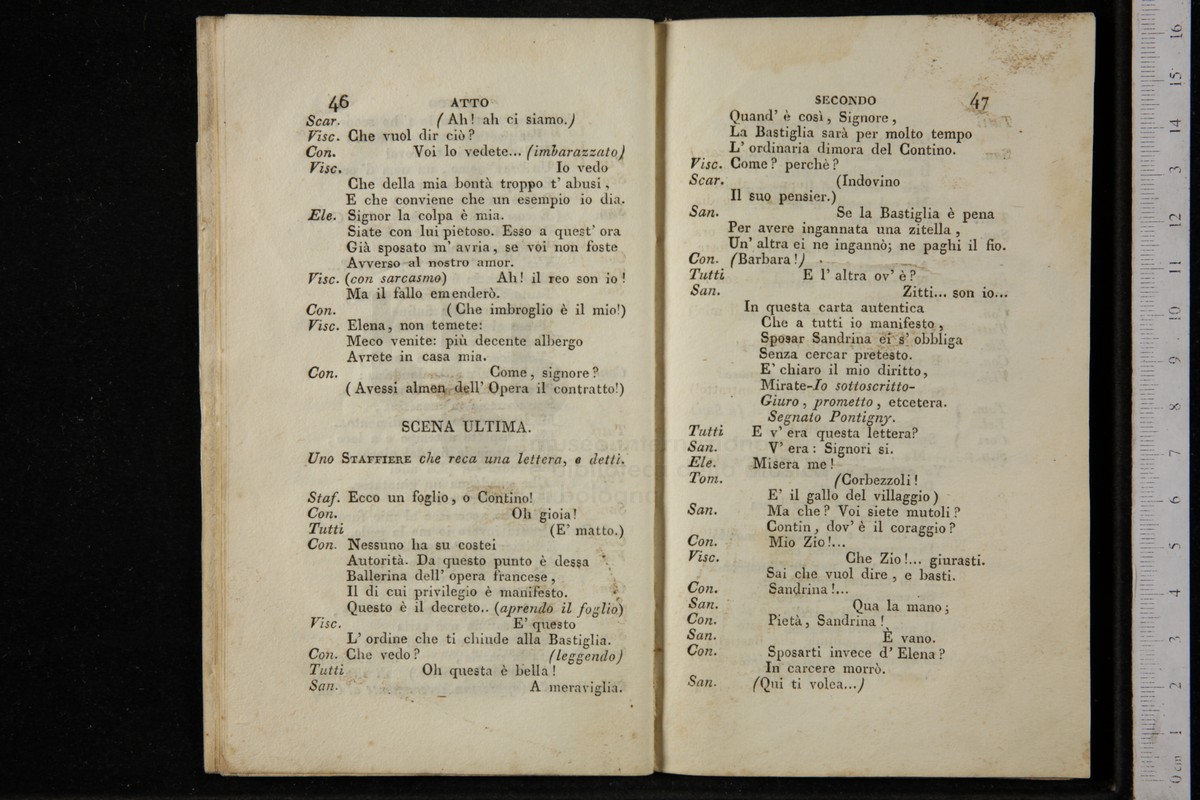 46 ATTO
Scar. (Ah! ah ci siamo.)
Visc. Che vuol dir ciò?
Con. Voi lo vedete... (imbarazzato)
Visc. Io vedo
Che della mia bontà troppo t' abusi,
E che conviene che un esempio io dia.
Ele. Signor la colpa è mia.
Siate con lui pietoso. Esso a quest' ora
Già sposato m' avria, se voi non foste
Avverso al nostro amor.
Visc. (con sarcasmo) Ah! il reo son io!
Ma il fallo emenderò.
Con. (Che imbroglio è il mio!)
Visc. Elena, non temete:
Meco venite: più decente albergo
Avrete in casa mia.
Con. Come, signore?
(Avessi almen dell' Opera il contratto!)
SCENA ULTIMA.
Uno STAFFIERE che reca una lettera, e detti.
Staf. Ecco un foglio, o Contino!
Con. Oh gioia!
Tutti (E' matto.)
Con. Nessuno ha su costei
Autorità. Da questo punto è dessa
Ballerina dell' opera francese,
Il di cui privilegio è manifesto.
Questo è il decreto.. (aprendo il foglio)
Visc. E' questo
L' ordine che ti chiude alla Bastiglia.
Con. Che vedo? (leggendo)
Tutti Oh questa è bella!
San. A meraviglia.
SECONDO 47
Quand' è così, Signore,
La Bastiglia sarà per molto tempo
L' ordinaria dimora del Contino.
Visc. Come? perchè?
Scar. (Indovino
Il suo pensier.)
San. Se la Bastiglia è pena
Per avere ingannata una zitella,
Un' altra ei ne ingannò; ne paghi il fio.
Con. (Barbara!)
Tutti E l' altra ov' è?
San. Zitti... son io...
In questa carta autentica
Che a tutti io manifesto,
Sposar Sandrina ei s' obbliga
Senza cercar pretesto.
E' chiaro il mio diritto,
Mirate-Io sottoscritto-
Giuro, prometto, etcetera.
Segnato Pontigny.
Tutti E v' era questa lettera?
San. V' era: Signori si.
Ele. Misera me!
Tom. (Corbezzoli!
E' il gallo del villaggio)
San. Ma che? Voi siete mutoli?
Contin, dov' è il coraggio?
Con. Mio Zio!...
Visc. Che Zio!... giurasti.
Sai che vuol dire, e basti.
Con. Sandrina!...
San. Qua la mano;
Con. Pietà, Sandrina!
San. È vano.
Con. Sposarti invece d' Elena?
In carcere morrò.
San. (Qui ti volea...)
museo internazionale
biblioteca della musica
bologna
0 cm 1 2 3 4 5 6 7 8 9 10 11 12 13 14 15 16